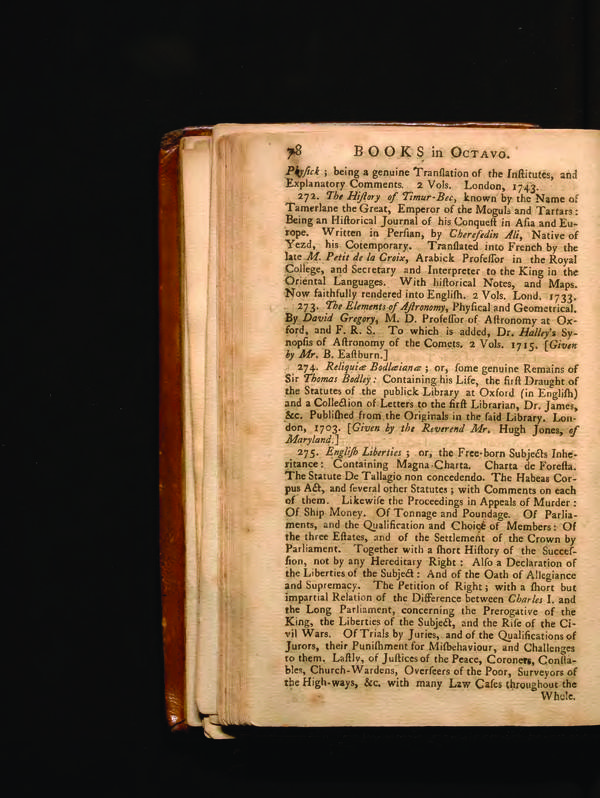 78 BOOKS in OCTAVO.
Phyſick ; being a genuine Tranſlation of the Inſtitutes, and
Explanatory Comments. 2 Vols. London, 1743.
272. The Hiſtory of Timur-Bec, known by the Name of
Tamerlane the Great, Emperor of the Moguls and Tartars :
Being an Hiſtorical Journal of his Conqueſt in Aſia and Eu-
rope. Written in Perſian, by Cherefedin Ali, Native of
Yezd, his Cotemporary. Tranſlated into French by the
late M. Petit de la Croix, Arabick Profeſſor in the Royal
College, and Secretary and Interpreter to the King in the
Oriental Languages. With hiſtorical Notes, and Maps.
Now faithfully rendered into Engliſh. 2 Vols. Lond. 1733.
273. The Elements of Aſtronomy, Phyſical and Geometrical.
By David Gregory, M. D. Profeſſor of Aſtronomy at Ox-
ford, and F. R. S. To which is added, Dr. Halley's Sy-
nopſis of Aſtronomy of the Comets. 2 Vols. 1715. [Given
by Mr. B. Eaſtburn.]
274. Reliquiæ Bodlæianæ ; or, ſome genuine Remains of
Sir Thomas Bodley : Containing his Life, the firſt Draught of
the Statutes of the publick Library at Oxford (in Engliſh)
and a Collection of Letters to the firſt Librarian, Dr. James,
&c. Publiſhed from the Originals in the ſaid Library. Lon-
don, 1703. [Given by the Reverend Mr. Hugh Jones, of
Maryland.]
275. Engliſh Liberties ; or, the Free-born Subjects Inhe-
ritance : Containing Magna Charta. Charta de Foreſta.
The Statute De Tallagio non concedendo. The Habeas Cor-
pus Act, and ſeveral other Statutes ; with Comments on each
of them. Likewiſe the Proceedings in Appeals of Murder :
Of Ship Money. Of Tonnage and Poundage. Of Parlia-
ments, and the Qualification and Choice of Members : Of
the three Eſtates, and of the Settlement of the Crown by
Parliament. Together with a ſhort Hiſtory of the Succeſ-
ſion, not by any Hereditary Right : Alſo a Declaration of
the Liberties of the Subject : And of the Oath of Allegiance
and Supremacy. The Petition of Right ; with a ſhort but
impartial Relation of the Difference between Charles I. and
the Long Parliament, concerning the Prerogative of the
King, the Liberties of the Subject, and the Riſe of the Ci-
vil Wars. Of Trials by Juries, and of the Qualifications of
Jurors, their Puniſhment for Miſbehaviour, and Challenges
to them. Laſtly, of Juſtices of the Peace, Coroners, Conſta-
bles, Church-Wardens, Overſeers of the Poor, Surveyors of
the High-ways, &c. with many Law Caſes throughout the
Whole.